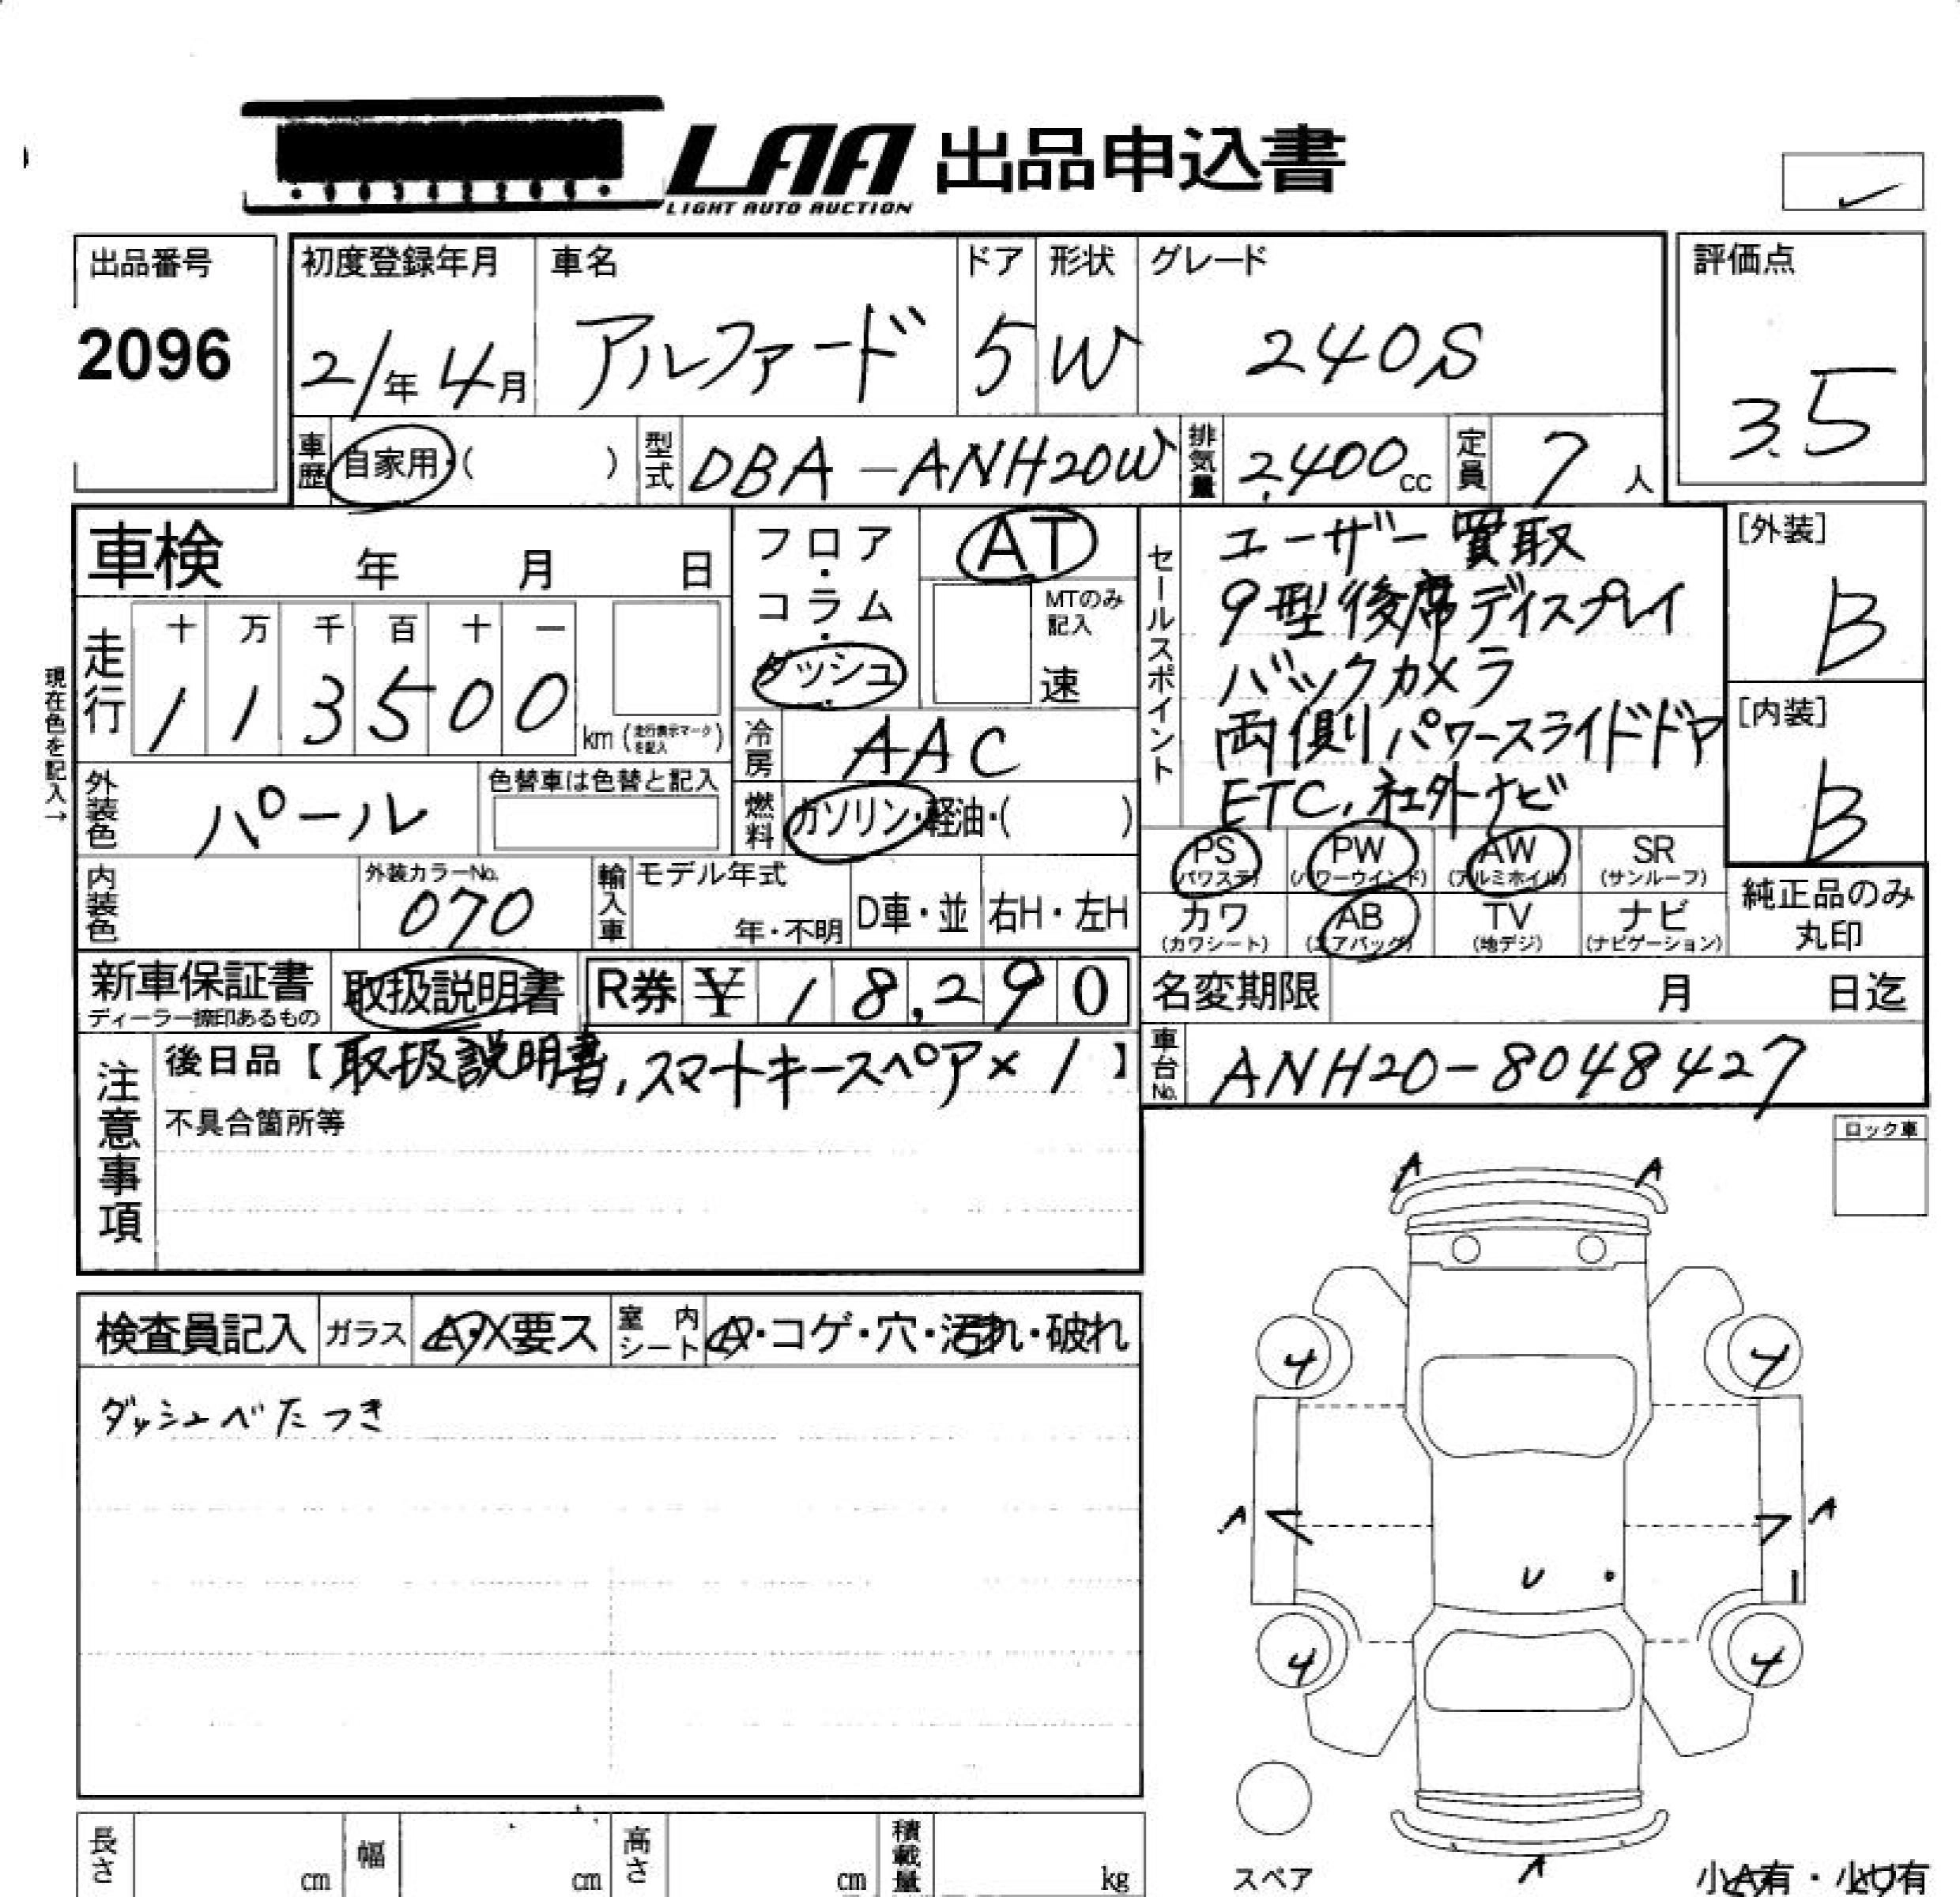 LAA 出品申込書
LIGHT AUTO AUCTION
出品番号
2096
初度登録年月
21年4月
車名
アルファード
ドア
5
形状
W
グレード
240S
評価点
3.5
車歴
自家用・( )
型式
DBA-ANH20W
排気量
2,400cc
定員
7人
車検 年 月 日
フロア・コラム・ダッシュ
AT
MTのみ記入
速
セールスポイント
ユーザー買取
9型後席ディスプレイ
バックカメラ
両側パワースライドドア
ETC,社外ナビ
[外装]
B
[内装]
B
現在色を記入→
走行
十 万 千 百 十 一
113500
km(走行表示マークを記入)
冷房
AAC
外装色
パール
色替車は色替と記入
燃料
ガソリン・軽油・( )
PS
(パワステ)
PW
(パワーウインド)
AW
(アルミホイル)
SR
(サンルーフ)
カワ
(カワシート)
AB
(エアバッグ)
TV
(地デジ)
ナビ
(ナビゲーション)
純正品のみ
丸印
内装色
外装カラーNo.
070
輸入車
モデル年式
年・不明
D車・並
右H・左H
新車保証書
ディーラー捺印あるもの
取扱説明書
R券 ¥ 18,290
名変期限 月 日迄
注意事項
後日品【取扱説明書,スマートキースペア×1】
不具合箇所等
車台No.
ANH20-8048427
ロック車
検査員記入
ガラス
A・X要ス
室内シート
A・コゲ・穴・汚れ・破れ
ダッシュべたつき
A A
4 4
A A
U
4 4
A
スペア
小A有・小U有
長さ cm
幅 cm
高さ cm
積載量 kg